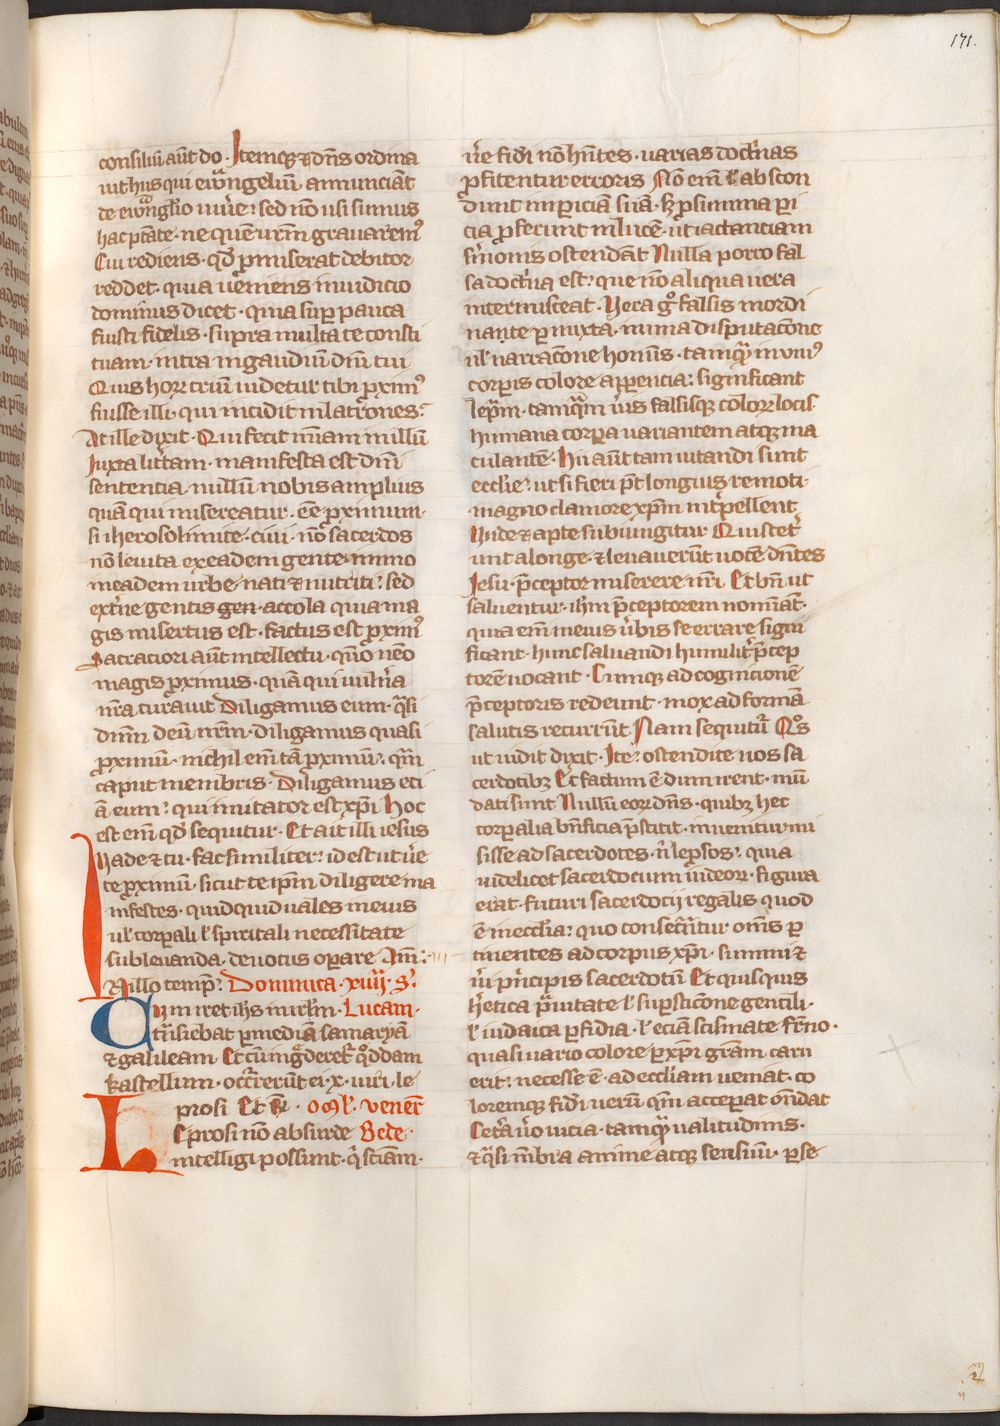 171.
consiliū aūt do · Itemq; & dn̄s ordina
uit hiis qui ewāngeliū annunciāt
de ewāng̅lio uiuе̅: sed nō usi sumus
hac ptāte · ne quē ur̄m grauarem᾿
Cui rediens · qd̄ ꝓmiserat debitor
reddet · quia ueniens in iudicio
dominus dicet · quia suꝑ pauca
fuisti fidelis · supra multa te consti
tuam · intra in gaudiū dn̄i tui
Quis hoꝝ triū uidetur tibi ꝓxim᾿
fuisse illi · qui incidit in latrones:
At ille dixit · Qui fecit mīam in illū
Iuxta litt̄am · manifesta est dn̄i
sentencia · nullū nobis amplius
quā qui misereatur · ēe ꝓximum ·
si iherosolimite · ciui · nō sacerdos
nō leuita ex eadem gente · immo
in eadem urbe · nati & nutriti: sed
ext̄ne gentis gen · accola quia ma
gis misertus est · factus est ꝓxim᾿
Sacratiori aūt intellectu · qm̄o nēo
magis ꝓximus · quā qui uuln̄a
nr̄a curauit Diligamus eum · q̄si
dn̄m deū nr̄m · diligamus quasi
ꝓximū · nichil em̄ tā ꝓximū · qm̄
caput membris · Diligamus eci
ā eum: qui imitator est xp̄i Hoc
est em̄ qd̄ sequitur · Et ait illi iesus
Uade & tu · fac similiter: id est ut ūe
te ꝓximū · sicut te ip̄m diligere ma
nifestes · quidquid uales in eius
ul̄ corꝑali l̄ spiritali necessitate
subleuanda · deuotus oꝑare Am̄:
IN illo temp̄e: Dominica · xiiii · S᾿
Cum iret ih̄s in irl̄m · Lucam ·
tn̄sibat ꝑ mediā samaryā
& galileam Et cū ingr̄deret᾿ q̄ddam
kastellum · occr̄rerūt ei · x · uiri · le
prosi Et R̄ · Oml̄ · vener̄
Leprosi nō absurde Bede ·
intelligi possunt · q̄ sciām ·
ūe fidi nō hn̄tes · uarias doct̄nas
ꝓfitentur erroris Nō em̄ l̄ abscon
dunt imꝑiciā suā · sꝫ ꝓ summa ꝑi
cia ꝓferunt in lucē · ūt iactanciam
sm̄onis ostendāt Nulla porro fal
sa doct̄na est: que nō aliqua uera
intermisceat · Uera g᾿ falsis inordi
nante ꝑmixta · in una disputac̄one
ul̄ narrac̄one homīs · tamq̄m in uni᾿
corꝑis colore apꝑencia: significant
lepm̄ · tamqm̄ ūis falsisq; colorꝫ locis
humana corꝑa uariantem atq; ma
culantē · Hii aūt tam uitandi sunt
eccl̄ie: ut si fieri p̄t longius remoti ·
magno clamore xp̄m int̄pellent
Unde & apte subiungitur Qui stet̄
unt a longe · & leuauerūt uocē dn̄tes
Iesu · p̄ceptor miserere nr̄i Et bn̄ ut
saluentur · ih̄m p̄ceptorem nomīat ·
quia em̄ in eius ūbis se errare signi
ficant · hunc saluandi humilit̄ p̄cep
torē uocant · Cumq; ad cognicionē
p̄ceptoris redeunt · mox ad formā
salutis recurrūt Nam sequitur̄ Qos
ut uidit dixit · Ite: ostendite uos sa
cerdotibꝫ Et factum ē dum irent · mū
dati sunt Nullū eoꝝ dn̄s · quibꝫ hec
corꝑalia bn̄ficia p̄stitit · inuenitur mi
sisse ad sacerdotes · n̄ lepsos: quia
uidelicet sacerdocium iudeoꝝ · figura
erat · futuri sacerdocij regalis quod
ē in eccl̄ia: quo consecr̄ntur om̄s ꝑ
tinentes ad corpus xp̄i · summi &
ūi pn̄cipis sacerdotū Et quisquis
h̄etica p̄uitate l̄ suꝑstic̄one gentili ·
l̄ iudaica ꝑfidia · l̄ eciā scismate fr̄no ·
quasi uario colore ꝑ xp̄i grām caru
erit: necesse ē · ad eccl̄iam ueniat · co
loremq; fidi uerū qm̄ acceꝑat on̄dat
Cet̄a ūo uicia · tamq̄m ualitudinis ·
& q̄si mēbra anime atq; sensuū · ꝑ se